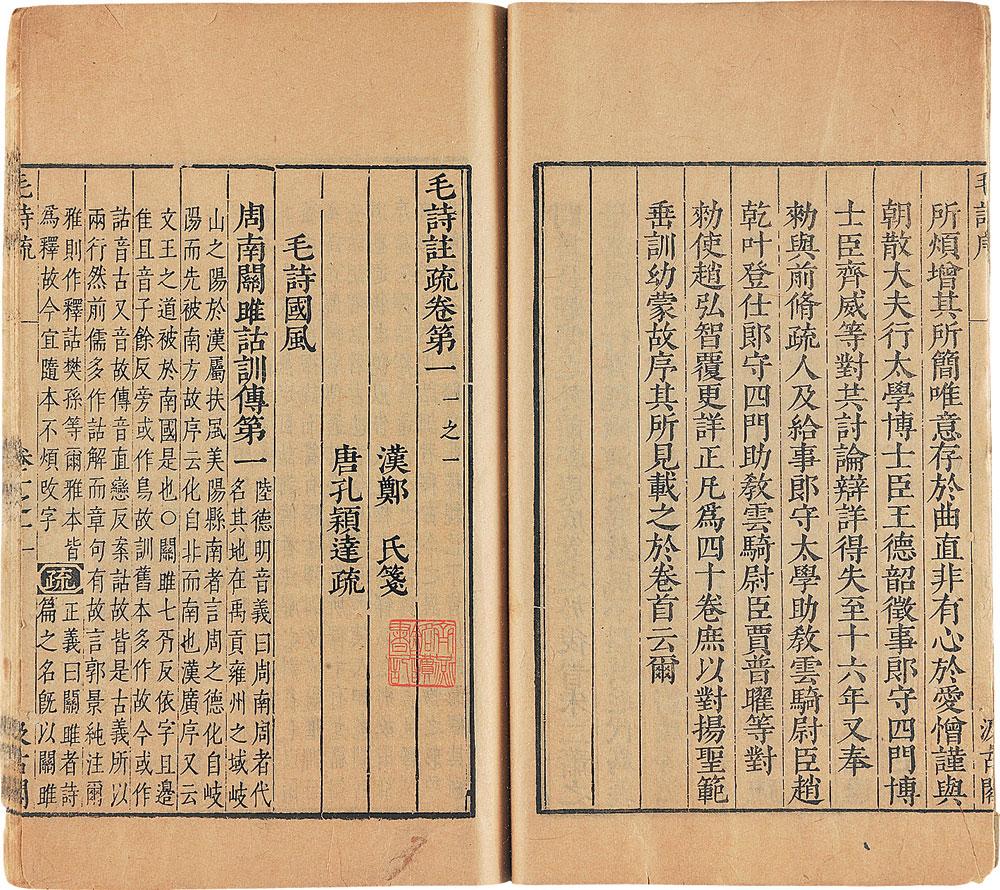 毛詩序
所煩增其所簡唯意存於曲直非有心於愛憎謹與
朝散大夫行太學博士臣王德韶徵事郎守四門博
士臣齊威等對共討論辯詳得失至十六年又奉
勑與前脩疏人及給事郎守太學助敎雲騎尉臣趙
乾叶登仕郎守四門助敎雲騎尉臣賈普曜等對
勑使趙弘智覆更詳正凡爲四十卷庶以對揚聖範
垂訓幼蒙故序其所見載之於卷首云爾
毛詩註疏卷第一 一之一
漢鄭 氏箋
唐孔穎達疏
毛詩國風
周南關雎詁訓傳第一
陸德明音義曰周南周者代
名其地在禹貢雍州之域岐
山之陽於漢屬扶風美陽縣南者言周之德化自岐
陽而先被南方故序云化自北而南也漢廣序又云
文王之道被於南國是也〇關雎七胥反依字且邊
隹且音子餘反旁或作鳥故訓舊本多作故今或作
詁音古又音故傳音直戀反案詁故皆是古義所以
兩行然前儒多作詁解而章句有故言郭景純注爾
雅則作釋詁樊孫等爾雅本皆
爲釋故今宜隨本不煩改字
疏
正義曰關雎者詩
篇之名旣以關雎
毛詩疏